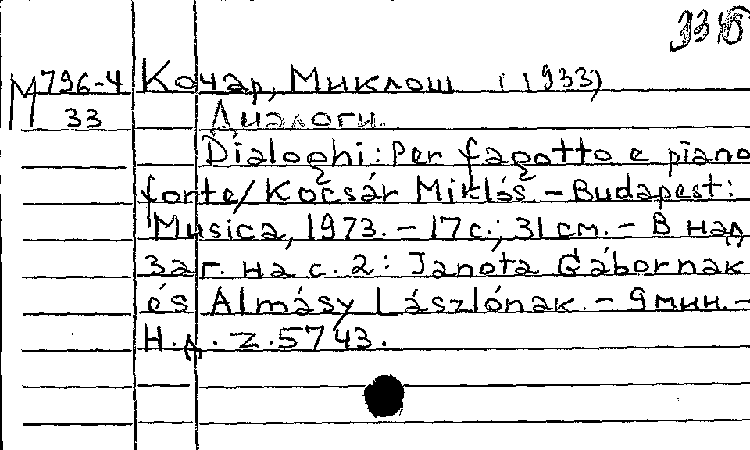 3318
М 796-4 Кочар, Миклош (1933)
33 Диалоги.
Dialoghi: Per fagotto e piano
forte/Kocsár Miklós. - Budapest:
Musica, 1973. - 17 с.; 31 см. - В над
заг. на с. 2: Janota Gábornak
és Almásy Lászlónak. - 9 мин. -
Н.д. Z.5743.